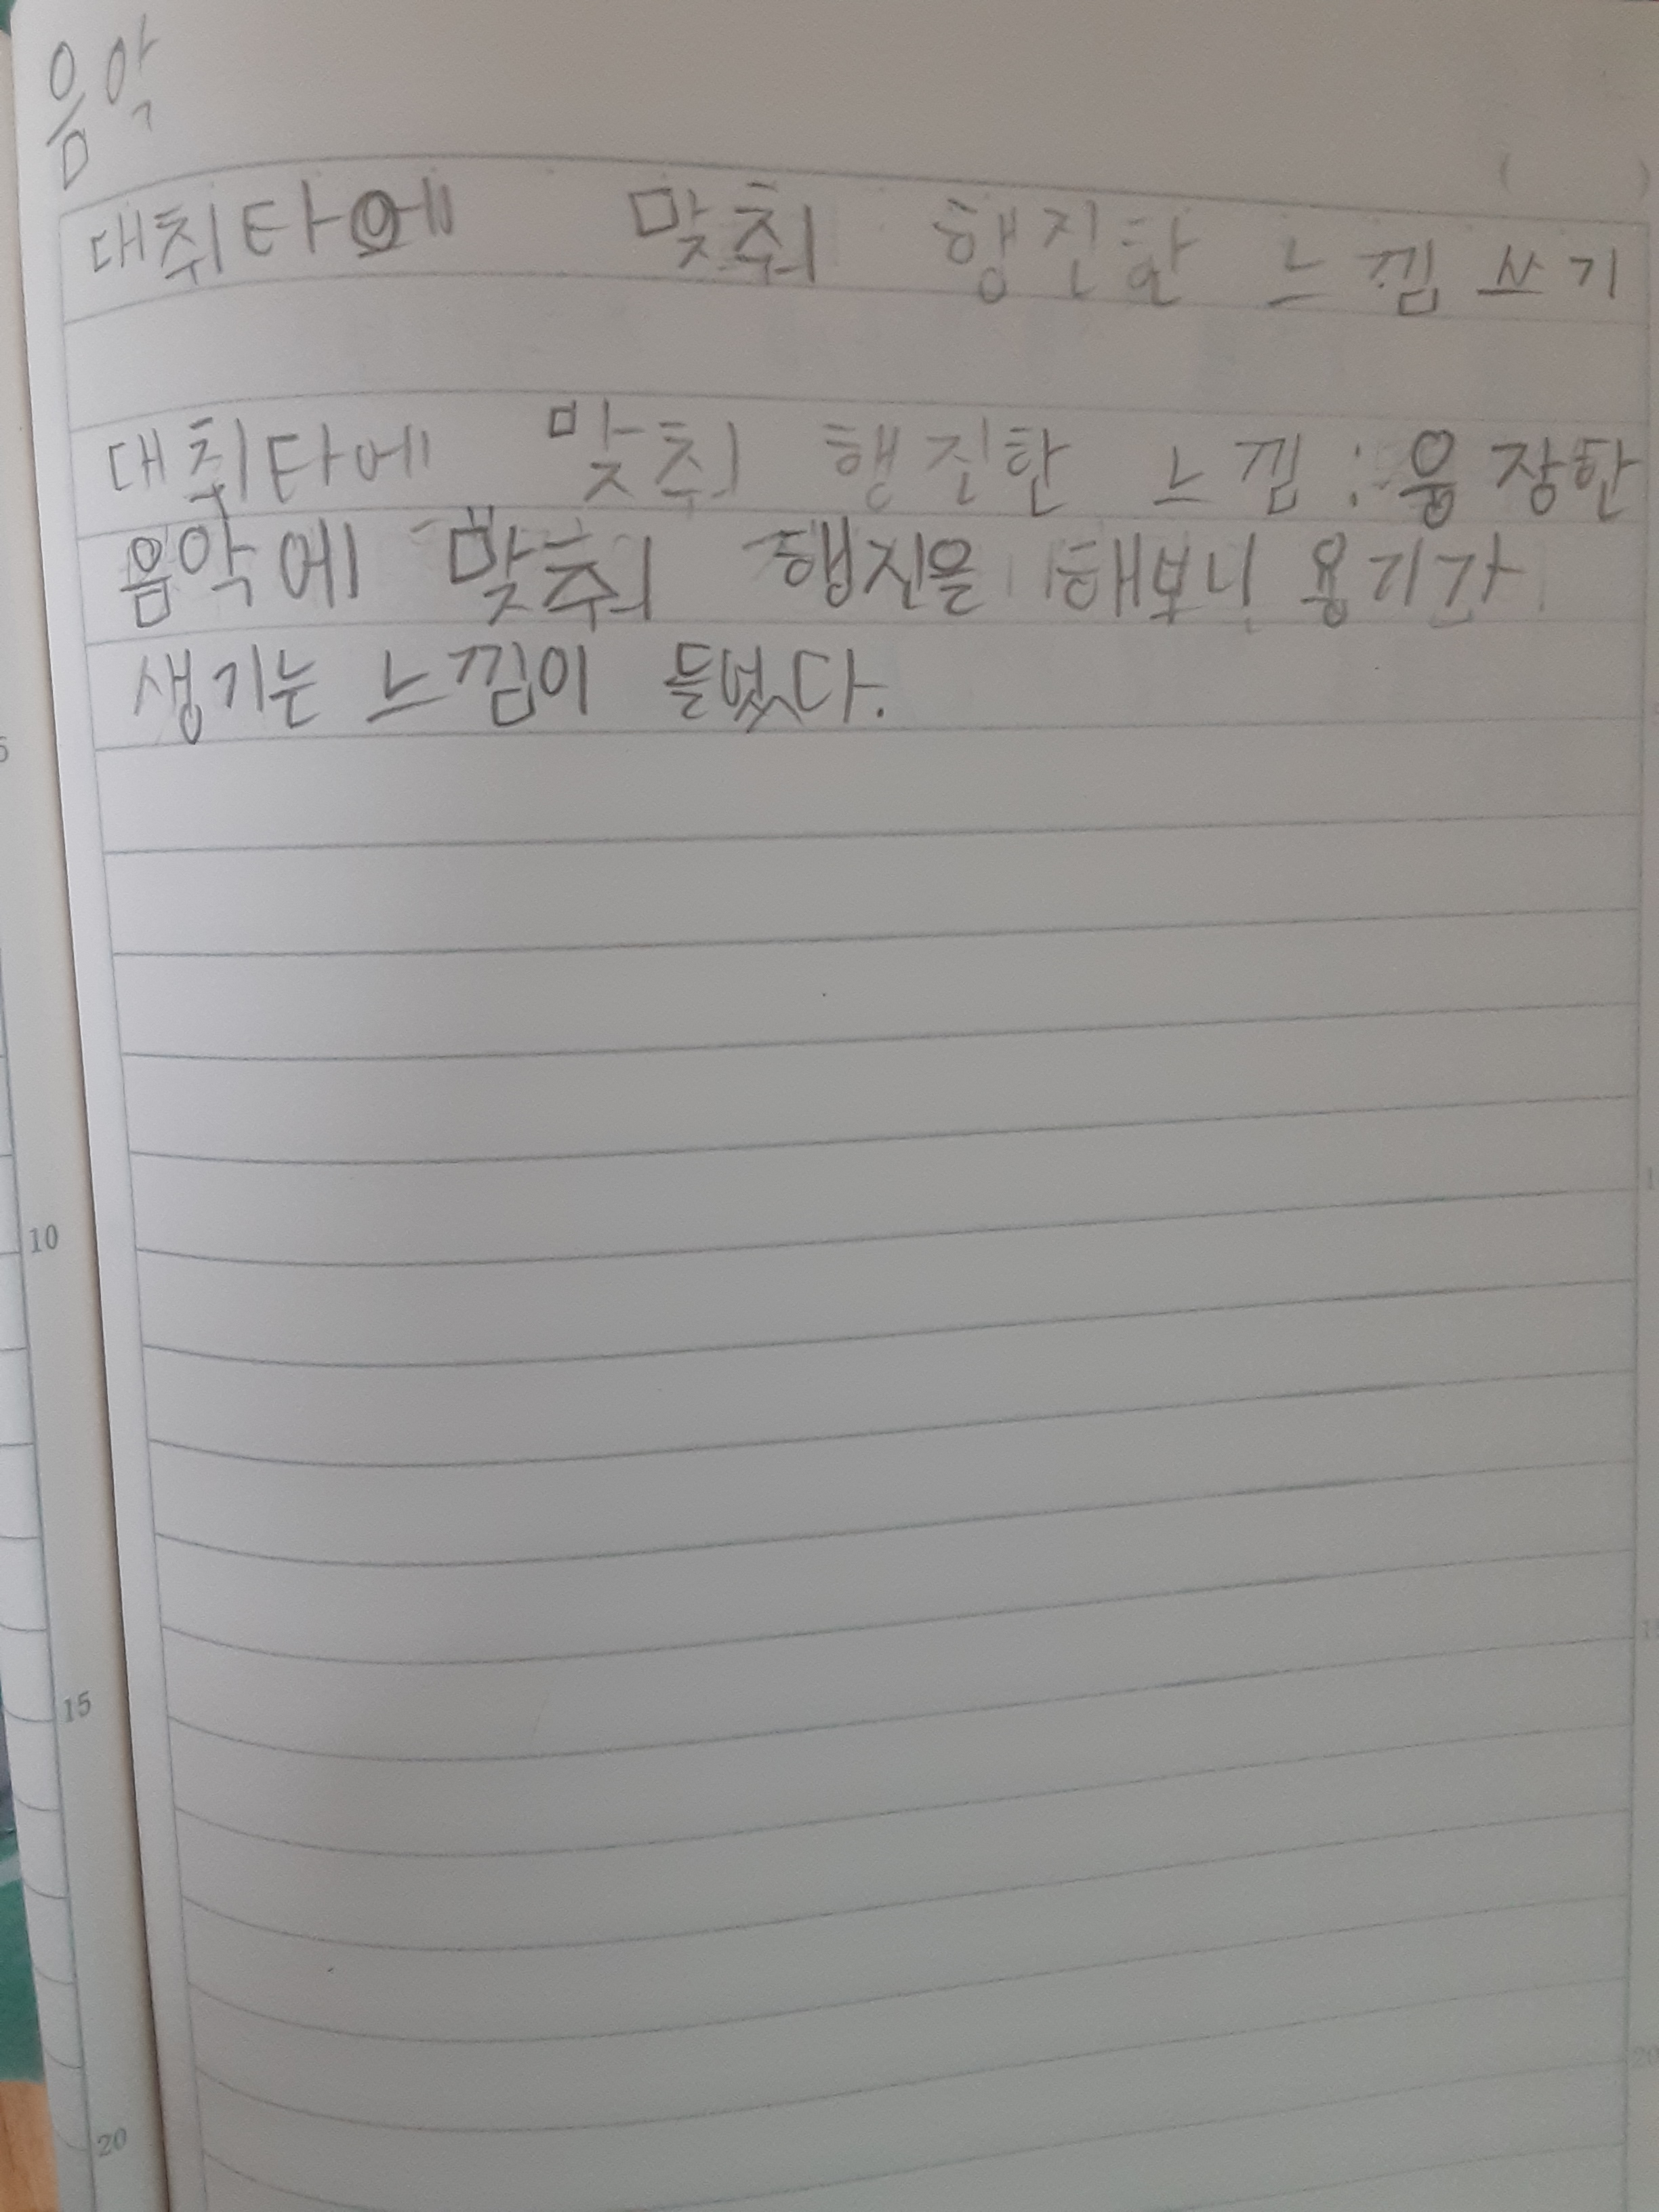 음악
대취타에 맞춰 행진한 느낌 쓰기
대취타에 맞춰 행진한 느낌 : 웅장한
음악에 맞춰 행진을 해보니 용기가
생기는 느낌이 들었다.
10
15
20